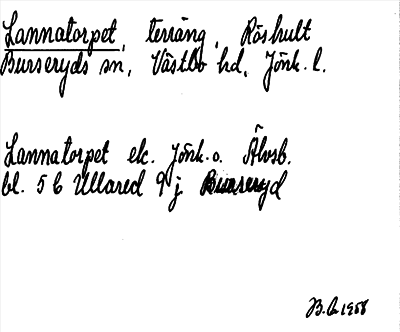 Lannatorpet, terräng, Röshult
Burseryds sn, Västbo hd, Jönk. l.
Lannatorpet ek. Jönk. o. Älvsb.
bl. 5 C Ullared 9 j Burseryd
B. L. 1958